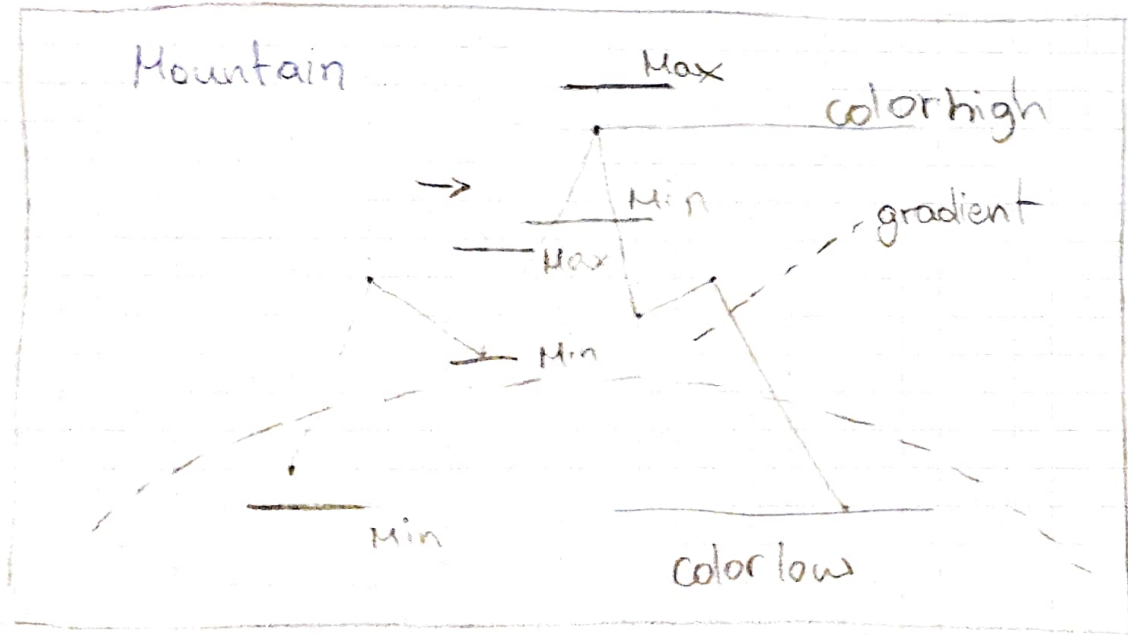 Mountain
Max
colorhigh
Min
gradient
Max
Min
Min
colorlow